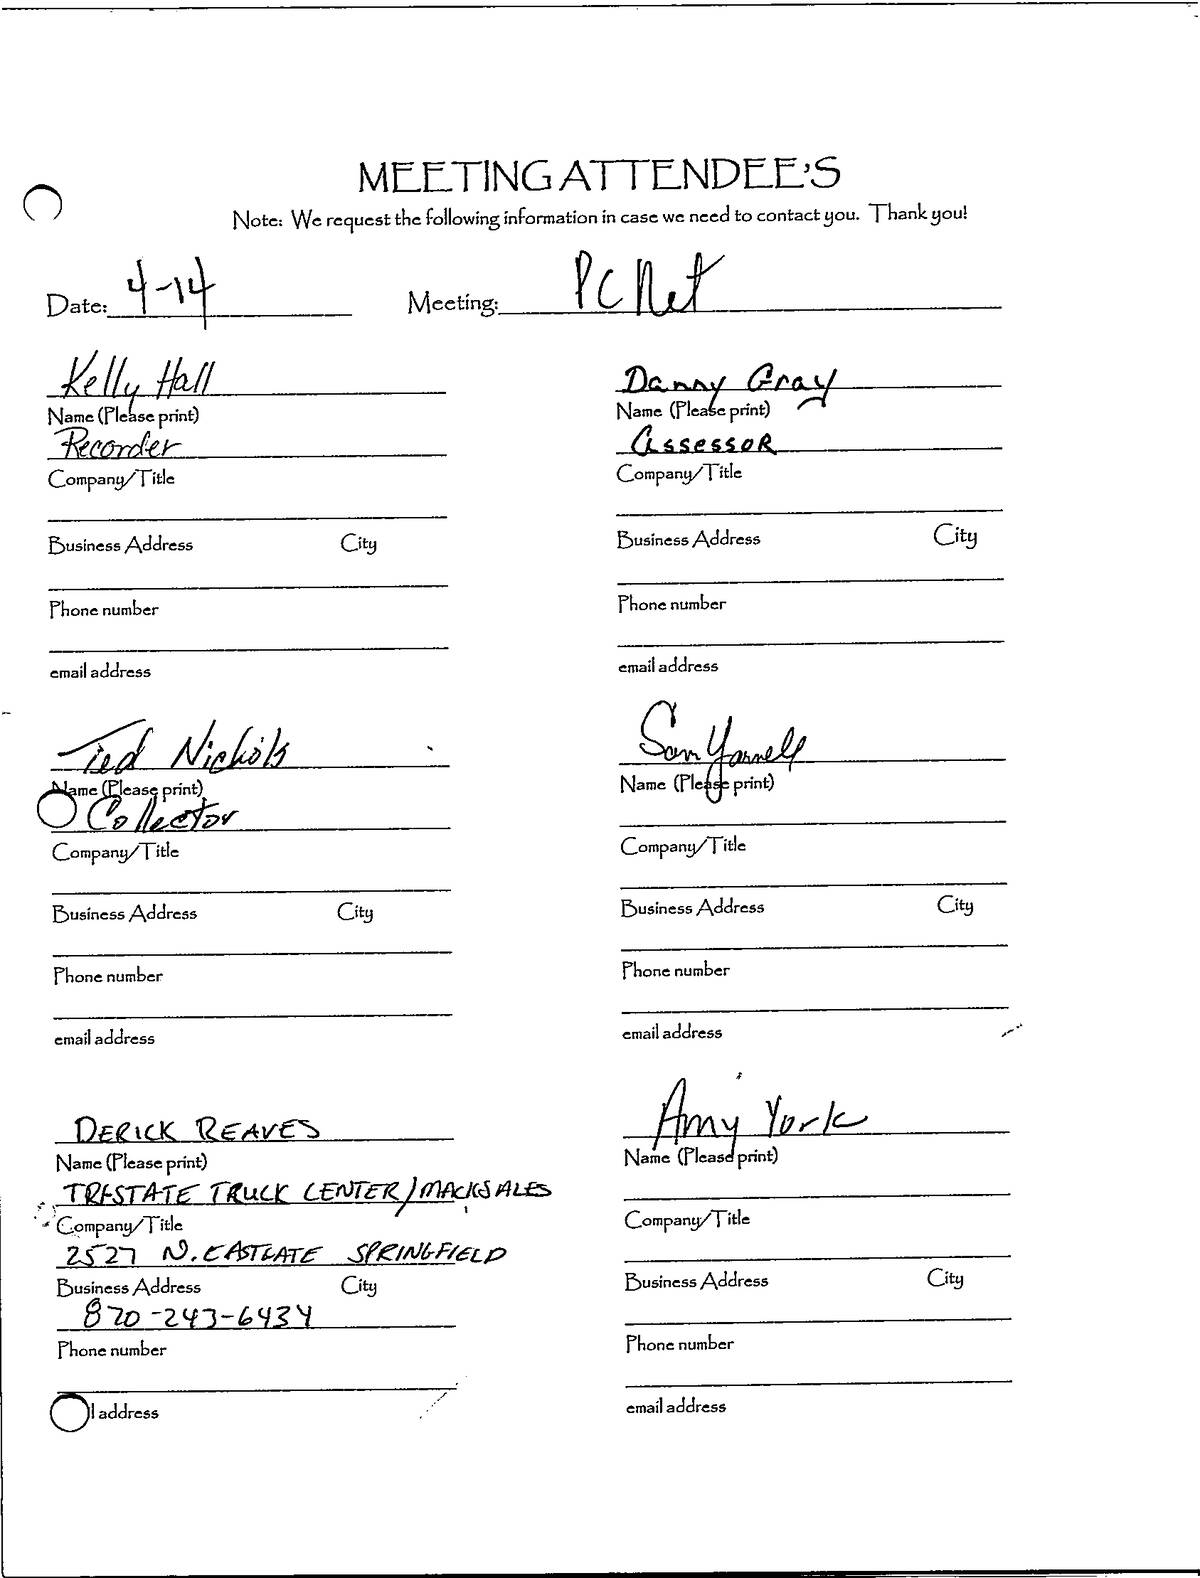 MEETING ATTENDEE'S
Note: We request the following information in case we need to contact you. Thank you!
Date: 4-14 Meeting: PC Net
Kelly Hall
Name (Please print)
Recorder
Company/Title
Business Address City
Phone number
email address
Danny Gray
Name (Please print)
Assessor
Company/Title
Business Address City
Phone number
email address
Ted Nichols
Name (Please print)
Collector
Company/Title
Business Address City
Phone number
email address
Sam Yarnell
Name (Please print)
Company/Title
Business Address City
Phone number
email address
DERICK REAVES
Name (Please print)
TRI-STATE TRUCK CENTER/MACKSALES
Company/Title
2527 N. EASTGATE SPRINGFIELD
Business Address City
870-243-6434
Phone number
l address
Amy York
Name (Please print)
Company/Title
Business Address City
Phone number
email address